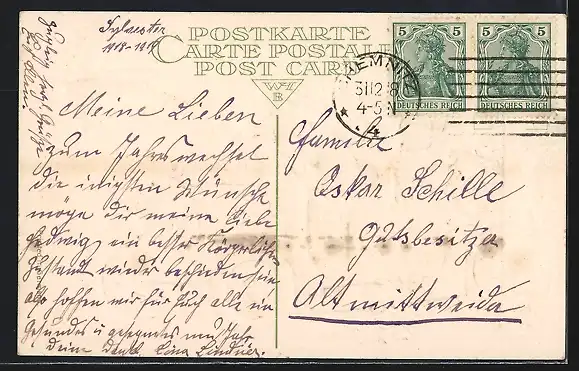 Sylvester
1908-190
POSTKARTE
CARTE POSTALE
POST CARD
W
B
5 5 5 5
DEUTSCHES REICH DEUTSCHES REICH
CHEMNITZ
31 12 8
4-5 N
Meine Lieben
Zum Jahreswechsel
die innigsten Wünsche
möge dir meine Liebe
Hedwig, ein besser Körperlicher
Zustand wieder beschieden sein
also hoffen wir für Euch alle ein
Gesundes u gesegnetes neu Jahr
Deine Lina Lindner.
Familie
Oskar Schille
Gutsbesitzer
Altmittweida